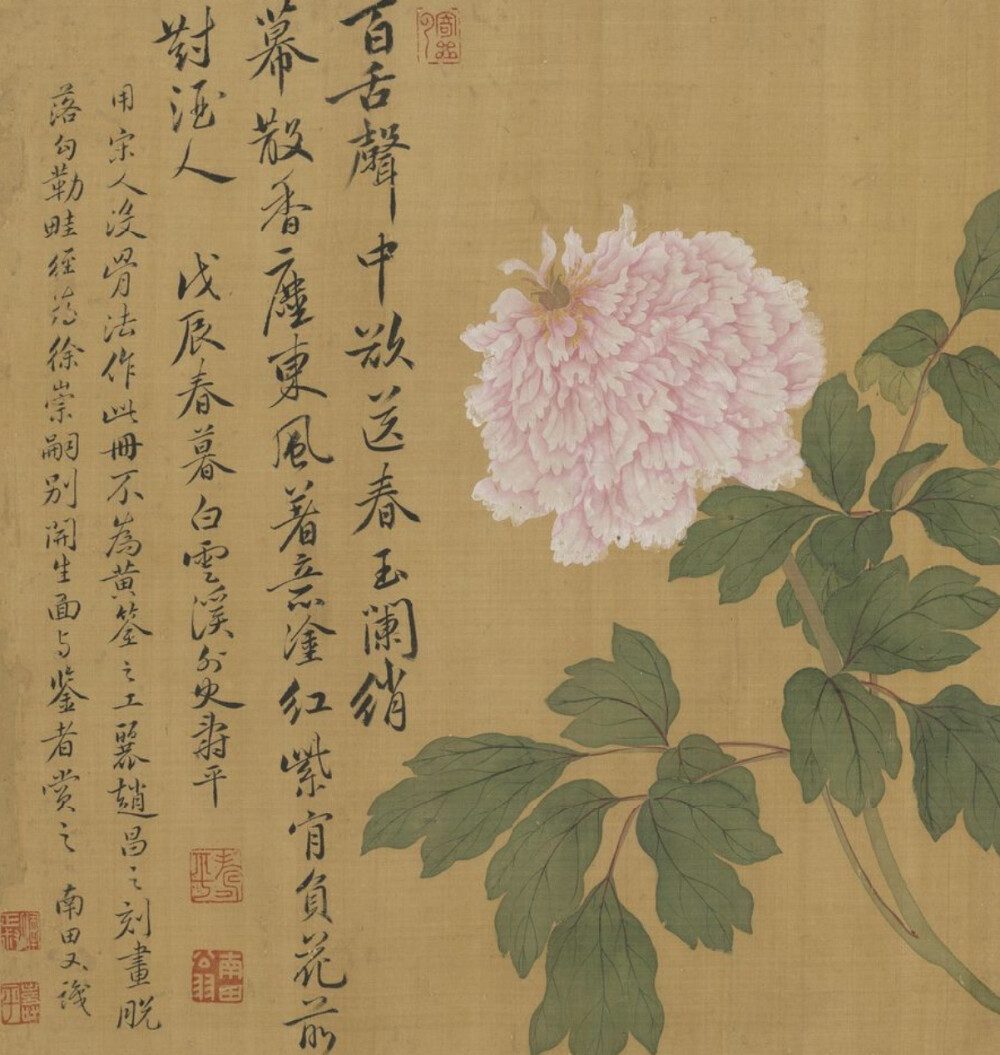 百舌聲中欲送春玉闌綃
幕散香塵東風著意塗紅紫肯負花前
對酒人 戊辰春暮白雲溪外史壽平
用宋人沒骨法作此冊不為黃筌之工麗趙昌之刻畫脫
落勾勒畦徑為徐崇嗣別開生面与鉴者賞之 南田又識
壽平
南田
翁